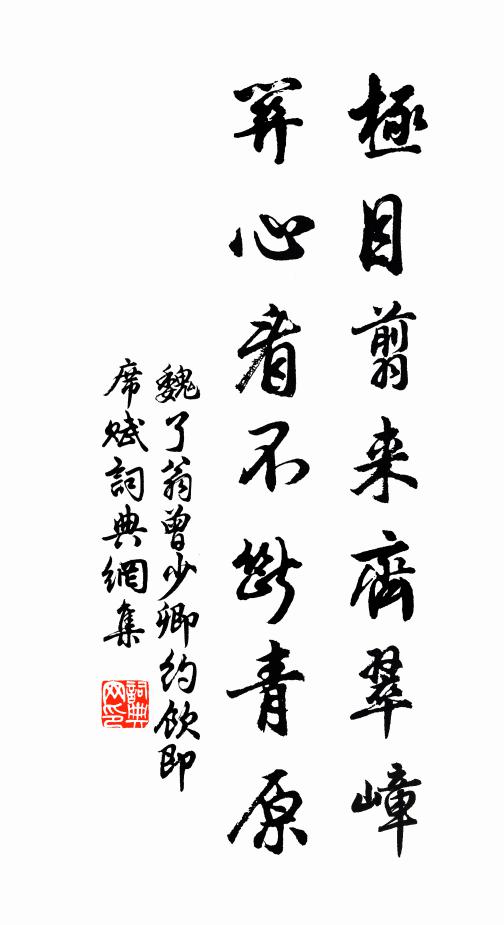 極目翦来齊翠嶂
開心看不斷青原
魏了翁曾少卿約飲即
席賦詞典網集
詞典
网印